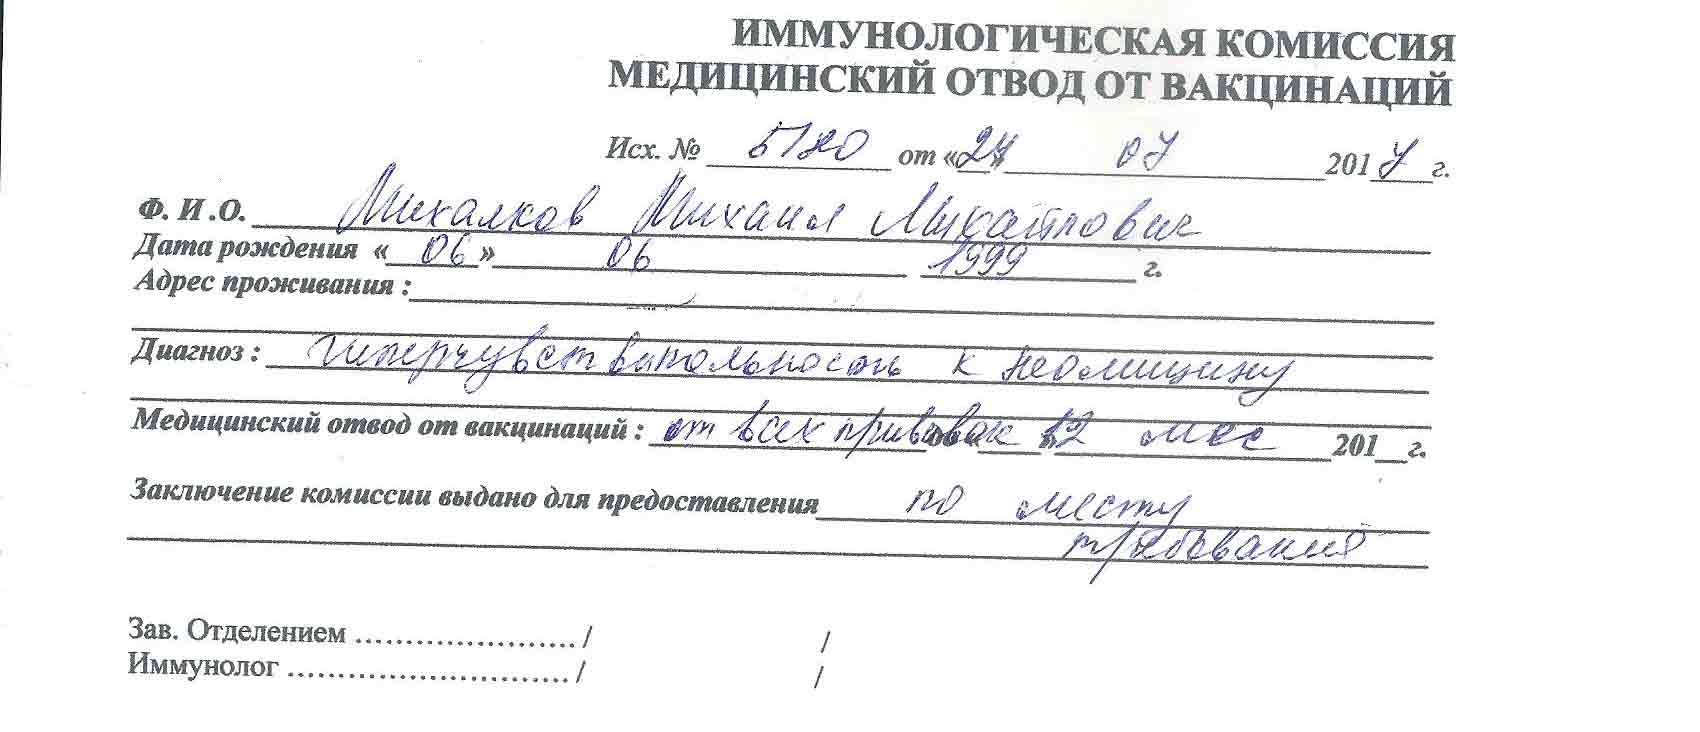 ИММУНОЛОГИЧЕСКАЯ КОМИССИЯ
МЕДИЦИНСКИЙ ОТВОД ОТ ВАКЦИНАЦИЙ
Исх. № 5180 от «24» 07 2017 г.
Ф. И .О. Михалков Михаил Михайлович
Дата рождения «06» 06 1999 г.
Адрес проживания :
Диагноз : гиперчувствительность к неомицину
Медицинский отвод от вакцинаций : от всех прививок 12 мес 201__г.
Заключение комиссии выдано для предоставления по месту
требования
Зав. Отделением ...................... / /
Иммунолог ............................ / /